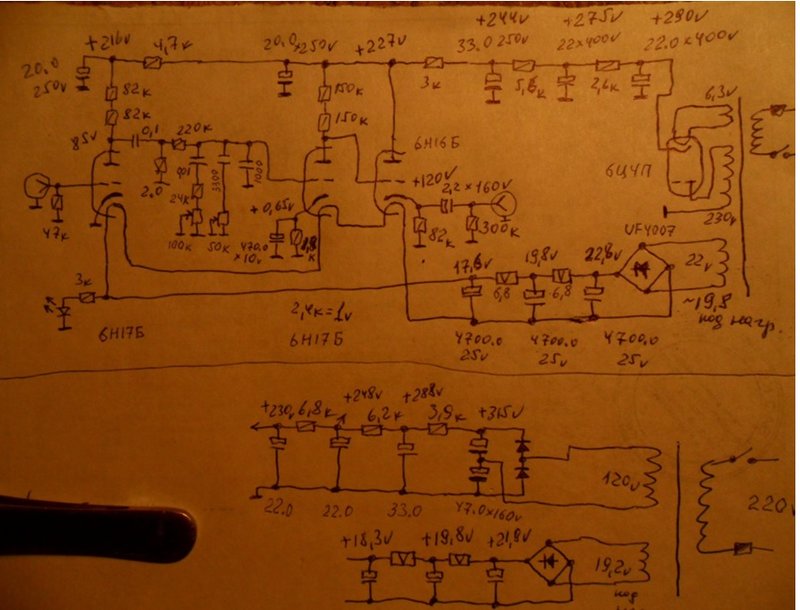 +244v +275v +290v
+216v 4,7к 20.0 ×250v +227v 33.0 250v 22×400v 22.0×400v
20.0
250v
3к 5,6к 2,6к
82к 150к
82к 150к
6,3v
85v 0,1 220к 6Н16Б 6Ц4П
+120v
2,2×160v
2.0 3300 1000
24к +0,65v 230v
47к 100к 50к 470.0
×10v
82к 300к UF4007
17,6v 19,8v 22,8v 22v
3к 6,8 6,8
~19,8
под нагр.
2,4к=1v
6Н17Б 6Н17Б 4700.0 4700.0 4700.0
25v 25v 25v
+230v 6,8к +248v 6,2к +288v 3,9к +315v
120v
220v
22.0 22.0 33.0 47.0×160v
+18,3v +19,8v +21,9v
19,2v
под